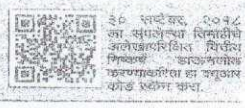 ३० सप्टेंबर, २०१८
ला संपलेल्या तिमाहीचे
अलेखापरिक्षित वित्तीय
निष्कर्ष डाऊनलोड
करण्याकरिता हा क्यूआर
कोड स्कॅन करा.